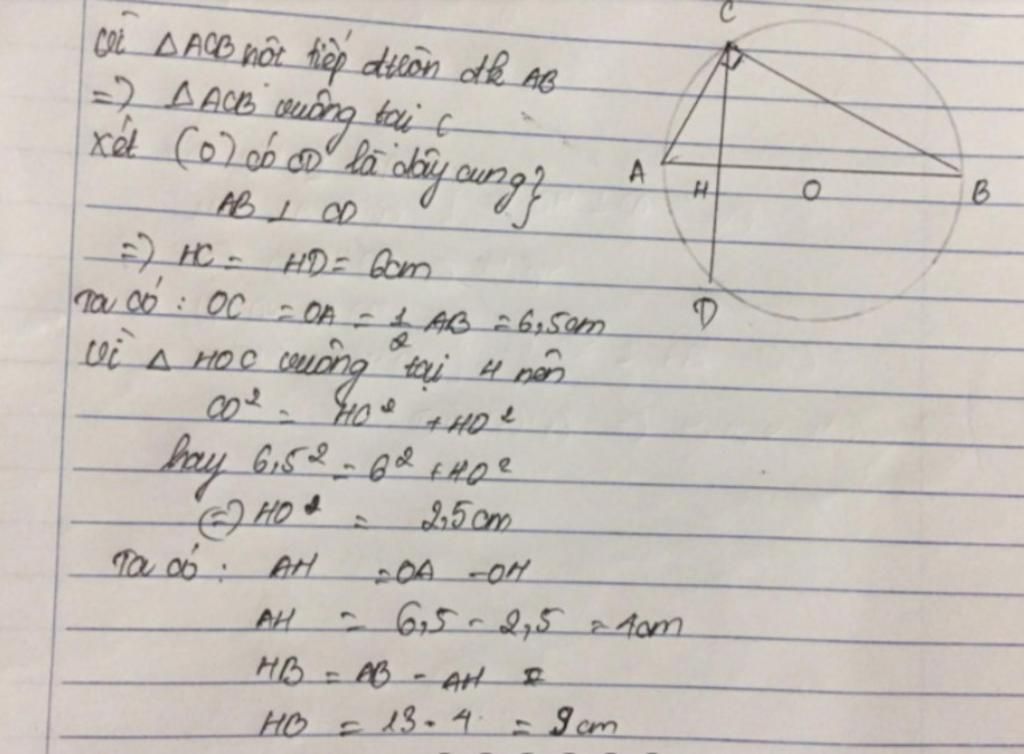 Vì △ACB nội tiếp đtròn đk AB
=> △ACB vuông tại C
Xét (O) có CD là dây cung }
AB ⊥ CD
=> HC = HD = 6cm
Ta có : OC = OA = 1/2 AB = 6,5cm
Vì △ HOC vuông tại H nên
CO² = HC² + HO²
hay 6,5² = 6² + HO²
(=) HO² = 2,5cm
Ta có : AH = OA - OH
AH = 6,5 - 2,5 = 4cm
HB = AB - AH
HB = 13 - 4 = 9cm
C
A H O B
D